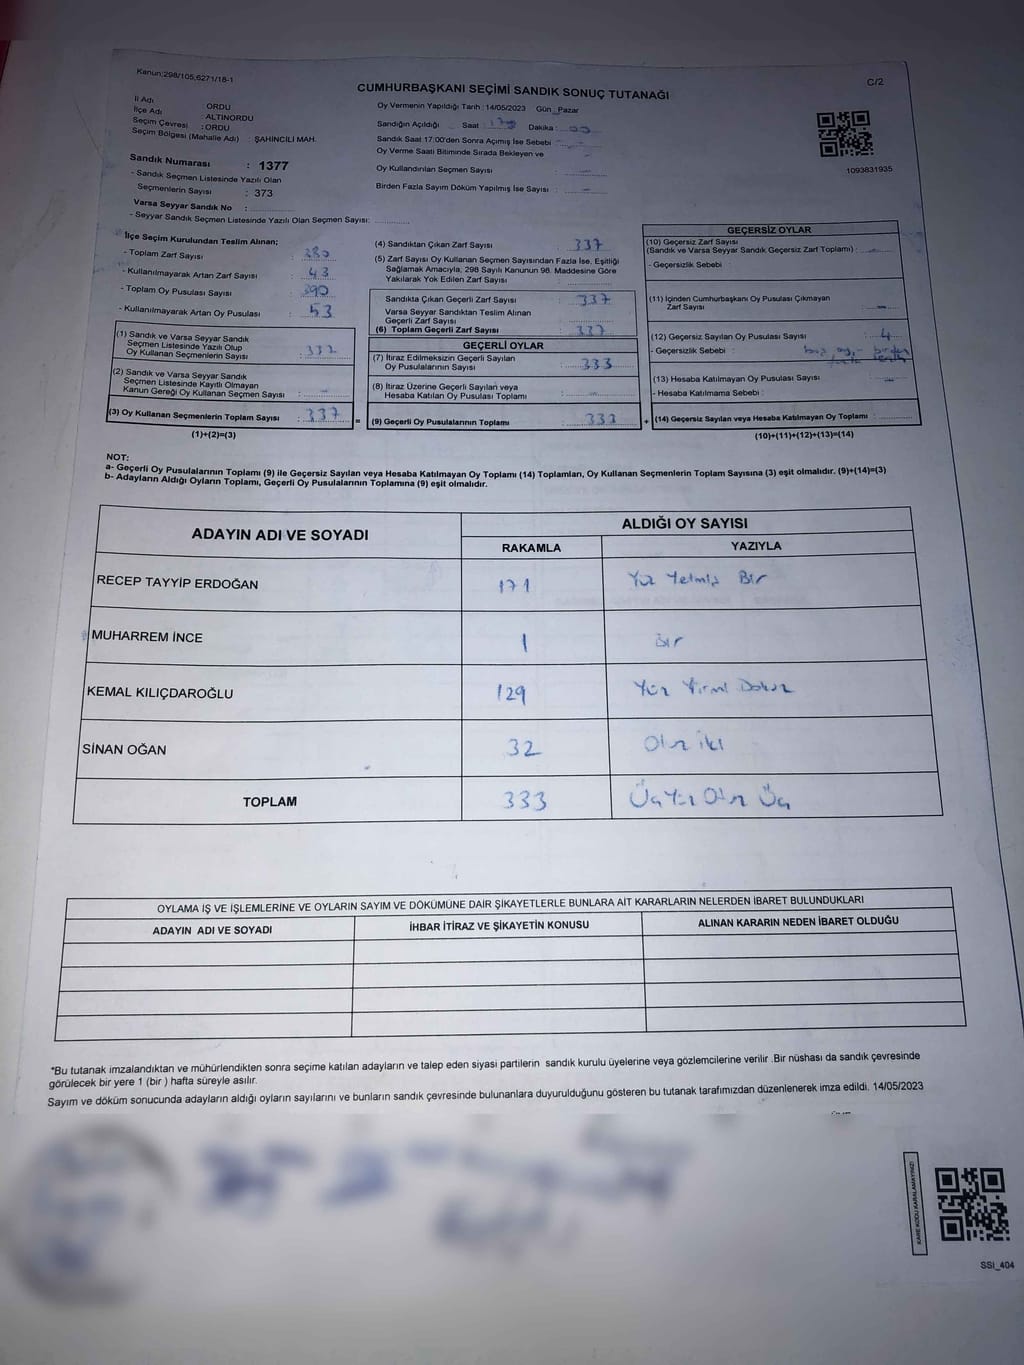 Kanun;298/105,6271/18-1
CUMHURBAŞKANI SEÇİMİ SANDIK SONUÇ TUTANAĞI
C/2
İl Adı ORDU
İlçe Adı ALTINORDU
Seçim Çevresi : ORDU
Seçim Bölgesi (Mahalle Adı) : ŞAHİNCİLİ MAH.
Sandık Numarası : 1377
- Sandık Seçmen Listesinde Yazılı Olan
Seçmenlerin Sayısı : 373
Varsa Seyyar Sandık No :
- Seyyar Sandık Seçmen Listesinde Yazılı Olan Seçmen Sayısı:
Oy Vermenin Yapıldığı Tarih : 14/05/2023 Gün Pazar
Sandığın Açıldığı Saat : Dakika :
Sandık Saat 17:00'den Sonra Açımış İse Sebebi
Oy Verme Saati Bitiminde Sırada Bekleyen ve
Oy Kullandırılan Seçmen Sayısı
Birden Fazla Sayım Döküm Yapılmış İse Sayısı :
1093831935
İlçe Seçim Kurulundan Teslim Alınan;
- Toplam Zarf Sayısı : 380
- Kullanılmayarak Artan Zarf Sayısı : 43
- Toplam Oy Pusulası Sayısı : 390
- Kullanılmayarak Artan Oy Pusulası : 53
(1) Sandık ve Varsa Seyyar Sandık
Seçmen Listesinde Yazılı Olup
Oy Kullanan Seçmenlerin Sayısı : 337
(2) Sandık ve Varsa Seyyar Sandık
Seçmen Listesinde Kayıtlı Olmayan
Kanun Gereği Oy Kullanan Seçmen Sayısı :
(3) Oy Kullanan Seçmenlerin Toplam Sayısı : 337
(1)+(2)=(3)
(4) Sandıktan Çıkan Zarf Sayısı : 337
(5) Zarf Sayısı Oy Kullanan Seçmen Sayısından Fazla İse, Eşitliği
Sağlamak Amacıyla, 298 Sayılı Kanunun 98. Maddesine Göre
Yakılarak Yok Edilen Zarf Sayısı :
Sandıkta Çıkan Geçerli Zarf Sayısı : 337
Varsa Seyyar Sandıktan Teslim Alınan
Geçerli Zarf Sayısı :
(6) Toplam Geçerli Zarf Sayısı : 337
GEÇERLİ OYLAR
(7) İtiraz Edilmeksizin Geçerli Sayılan
Oy Pusulasının Sayısı : 333
(8) İtiraz Üzerine Geçerli Sayılan veya
Hesaba Katılan Oy Pusulası Toplamı :
= (9) Geçerli Oy Pusulalarının Toplamı : 333 +
GEÇERSİZ OYLAR
(10) Geçersiz Zarf Sayısı
(Sandık ve Varsa Seyyar Sandık Geçersiz Zarf Toplamı) :
- Geçersizlik Sebebi :
(11) İçinden Cumhurbaşkanı Oy Pusulası Çıkmayan
Zarf Sayısı :
(12) Geçersiz Sayılan Oy Pusulası Sayısı : 4
- Geçersizlik Sebebi :
(13) Hesaba Katılmayan Oy Pusulası Sayısı :
- Hesaba Katılmama Sebebi :
(14) Geçersiz Sayılan veya Hesaba Katılmayan Oy Toplamı :
(10)+(11)+(12)+(13)=(14)
NOT:
a- Geçerli Oy Pusulalarının Toplamı (9) ile Geçersiz Sayılan veya Hesaba Katılmayan Oy Toplamı (14) Toplamları, Oy Kullanan Seçmenlerin Toplam Sayısına (3) eşit olmalıdır. (9)+(14)=(3)
b- Adayların Aldığı Oyların Toplamı, Geçerli Oy Pusulalarının Toplamına (9) eşit olmalıdır.
ADAYIN ADI VE SOYADI
ALDIĞI OY SAYISI
RAKAMLA YAZIYLA
RECEP TAYYİP ERDOĞAN 171 Yüz Yetmiş Bir
MUHARREM İNCE 1 Bir
KEMAL KILIÇDAROĞLU 129 Yüz Yirmi Dokuz
SİNAN OĞAN 32 Otuz iki
TOPLAM 333 Üç Yüz Otuz Üç
OYLAMA İŞ VE İŞLEMLERİNE VE OYLARIN SAYIM VE DÖKÜMÜNE DAİR ŞİKAYETLERLE BUNLARA AİT KARARLARIN NELERDEN İBARET BULUNDUKLARI
ADAYIN ADI VE SOYADI İHBAR İTİRAZ VE ŞİKAYETİN KONUSU ALINAN KARARIN NEDEN İBARET OLDUĞU
*Bu tutanak imzalandıktan ve mühürlendikten sonra seçime katılan adayların ve talep eden siyasi partilerin sandık kurulu üyelerine veya gözlemcilerine verilir .Bir nüshası da sandık çevresinde
görülecek bir yere 1 (bir ) hafta süreyle asılır.
Sayım ve döküm sonucunda adayların aldığı oyların sayılarını ve bunların sandık çevresinde bulunanlara duyurulduğunu gösteren bu tutanak tarafımızdan düzenlenerek imza edildi. 14/05/2023
KARE KODU KARALAMAYINIZ!
SSI_404